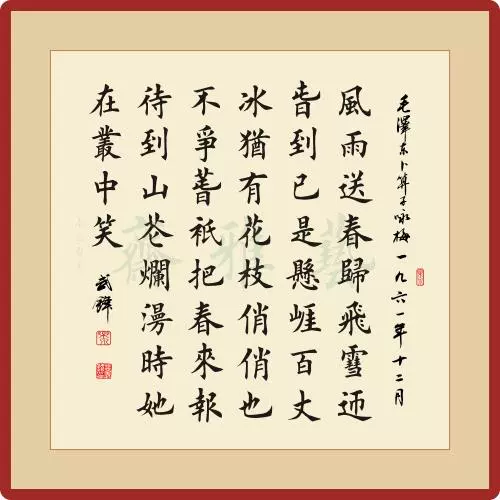 毛澤东卜算子咏梅一九六一年十二月
風雨送春歸飛雪迎
旾到已是懸崖百丈
冰猶有花枝俏俏也
不爭萅祇把春來報
待到山芲爛漫時她
在叢中笑
藝雅齋